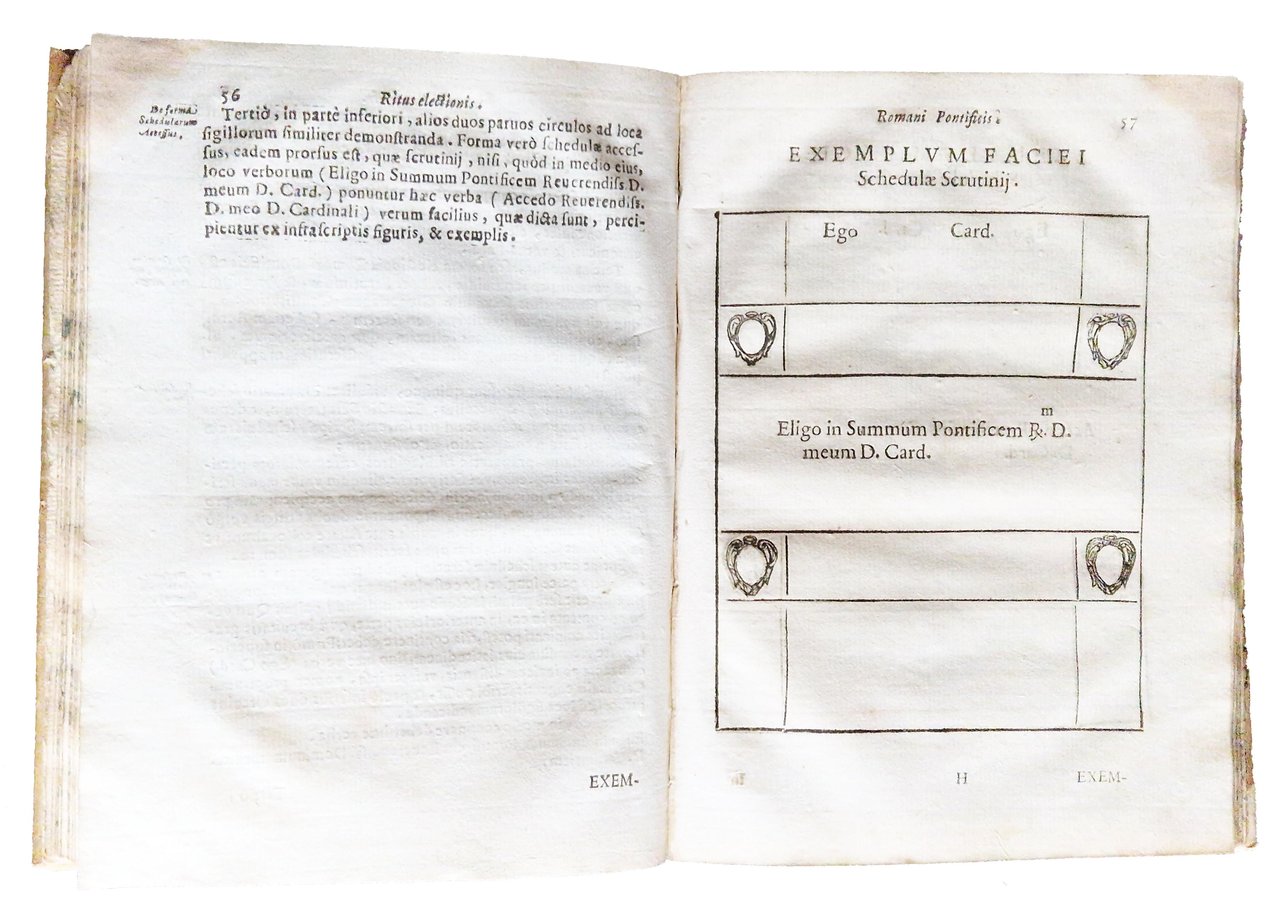 56
Ritus electionis.
De forma
Schedularum
Accessus.
Tertiò, in partè inferiori, alios duos paruos circulos ad loca
ſigillorum ſimiliter demonſtranda. Forma verò ſchedulæ acceſ-
ſus, eadem prorſus eſt, quæ ſcrutinij, niſi, quòd in medio eius,
loco verborum (Eligo in Summum Pontificem Reuerendiſs. D.
meum D. Card.) ponuntur hæc verba (Accedo Reuerendiſs.
D. meo D. Cardinali) verum facilius, quæ dicta ſunt, perci-
pientur ex infraſcriptis figuris, & exemplis.
EXEM-
Romani Pontificis.
57
EXEMPLVM FACIEI
Schedulæ Scrutinij.
Ego Card.
m
Eligo in Summum Pontificem R. D.
meum D. Card.
H
EXEM-